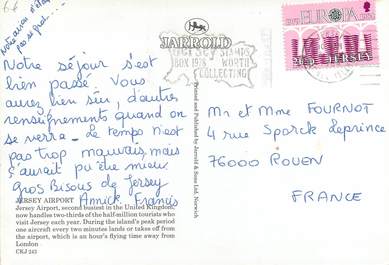 Notre avion n'était
pas si gros...
Notre séjour s'est
bien passé. Vous
aurez bien sûr, d'autres
renseignements quand on
se verra - Le temps n'est
pas trop mauvais mais
s'aurait pu être mieux
Gros Bisous de Jersey
Annick Francis
JERSEY AIRPORT
Jersey Airport, second busiest in the United Kingdom,
now handles two-thirds of the half-million tourists who
visit Jersey each year. During the island's peak period
one aircraft every two minutes lands or takes off from
the airport, which is an hour's flying time away from
London
CKJ 243
JARROLD
Printed and Published by Jarrold & Sons Ltd, Norwich
JERSEY STAMPS
BOX 1978 WORTH
COLLECTING
EUROPA
JERSEY
Mr et Mme FOURNOT
4 rue Sporck Leprince
76000 ROUEN
FRANCE